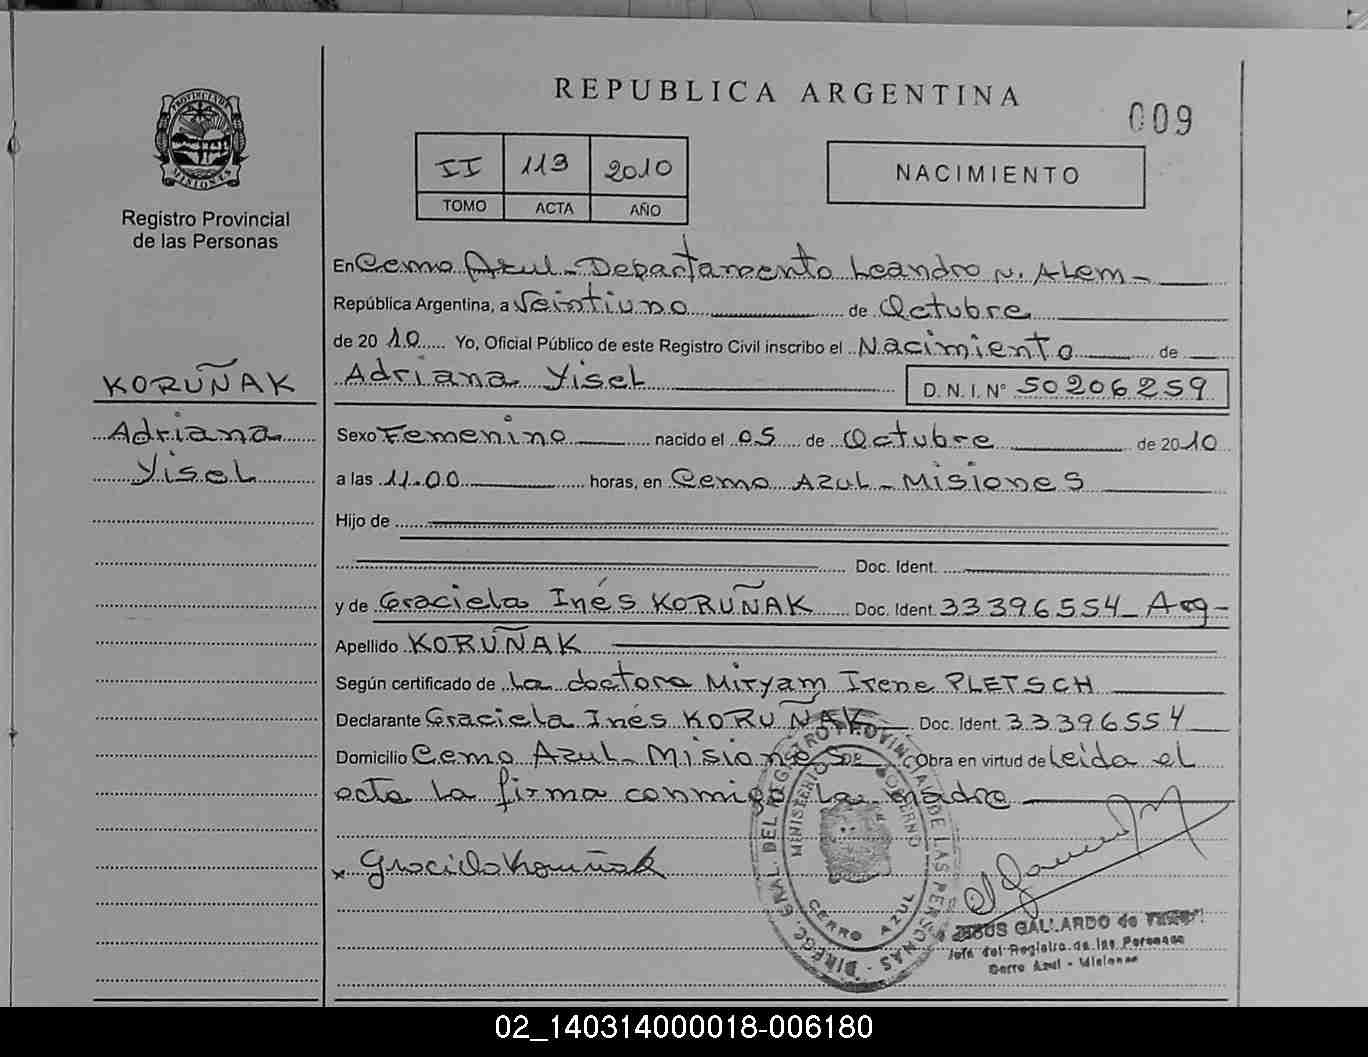 REPUBLICA ARGENTINA
009
PROVINCIA DE
MISIONES
Registro Provincial
de las Personas
II 113 2010
TOMO ACTA AÑO
NACIMIENTO
En Cerro Azul - Departamento Leandro N. Alem -
República Argentina, a Veintiuno de Octubre
de 2010 Yo, Oficial Público de este Registro Civil inscribo el Nacimiento de
Adriana Yisel D. N. I. Nº 50206259
KORUÑAK
Adriana
Yisel
Sexo Femenino nacido el 05 de Octubre de 2010
a las 11.00 horas, en Cerro Azul - Misiones
Hijo de
Doc. Ident.
y de Graciela Inés KORUÑAK Doc. Ident. 33396554 - Arg -
Apellido KORUÑAK
Según certificado de La doctora Miryam Irene PLETSCH
Declarante Graciela Inés KORUÑAK Doc. Ident. 33396554
Domicilio Cerro Azul - Misiones Obra en virtud de Leida el
acta la firma conmigo la madre
x Graciela Koruñak
DIREC. GRAL. DEL REGISTRO PROVINCIAL DE LAS PERSONAS
MINISTERIO DE GOBIERNO
CERRO AZUL
GALLARDO de
Jefe del Registro de las Personas
Cerro Azul - Misiones
02_140314000018-006180